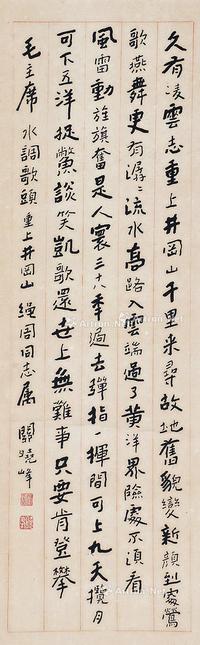 久有凌雲志重上井岡山千里来尋故地舊貌變新顔到處鶯
歌燕舞更有潺〻流水高路入雲端過了黄洋界險處不須看
風雷動旌旗奮是人寰三十八年過去彈指一揮間可上九天攬月
可下五洋捉鱉談笑凱歌還世上無難事只要肯登攀
毛主席 水調歌頭 重上井岡山 繩周同志属 關曉峰